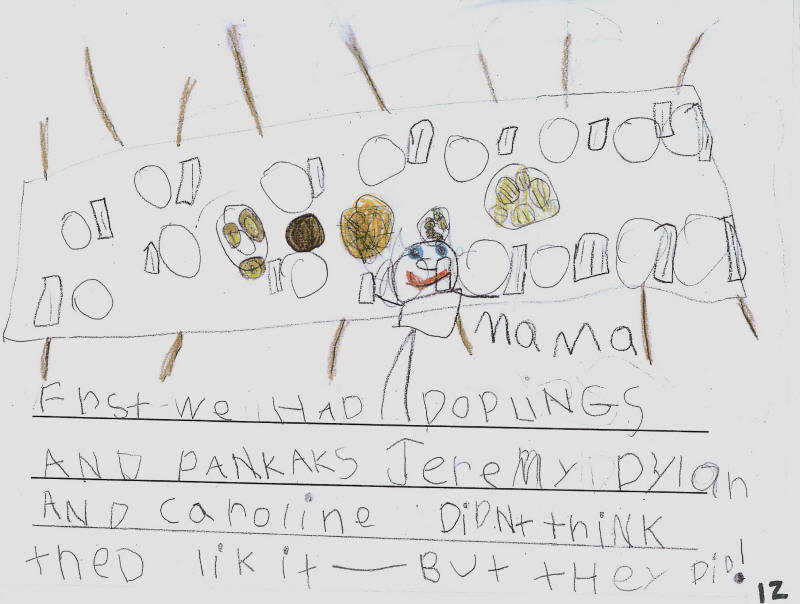 MAMA
FRST WE HAD DOPLiNGS
AND PANKAKS JereMy DyLan
AND Caroline DiDNt thiNK
theD lik it — BUt tHey DiD!
12